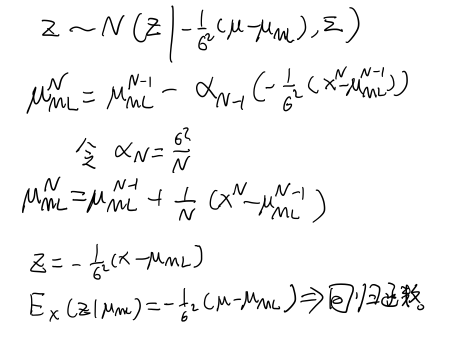 z ~ N(z | -1/6² (μ-μ_mL), Σ)
μ_mL^N = μ_mL^N-1 - α_N-1 (-1/6² (x^N-μ_mL^N-1))
令 α_N = 6²/N
μ_mL^N = μ_mL^N-1 + 1/N (x^N-μ_mL^N-1)
z = -1/6² (x-μ_mL)
E_x (z|μ_m) = -1/6² (μ-μ_mL) ⇒ 回归函数。